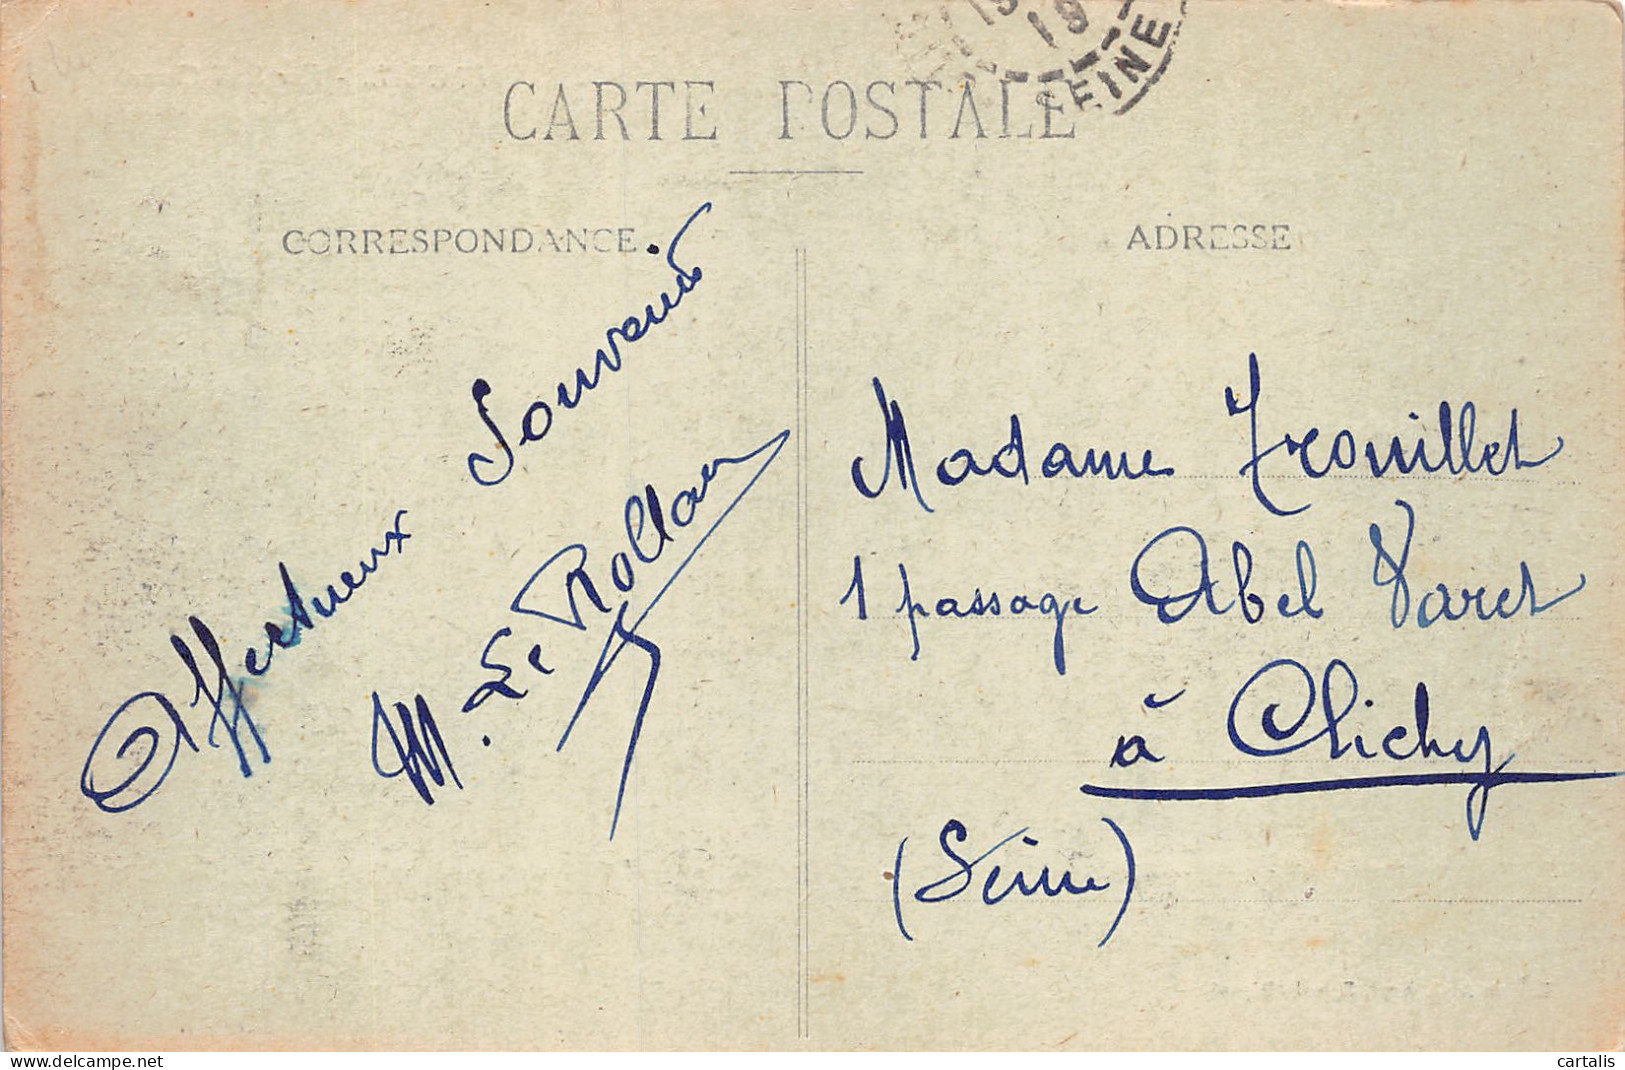 CARTE POSTALE
EINE
CORRESPONDANCE
ADRESSE
Affectueux Souvenir
M. Le Rollan
Madame Trouillet
1 passage Abel Varet
à Clichy
(Seine)
www.delcampe.net
cartalis